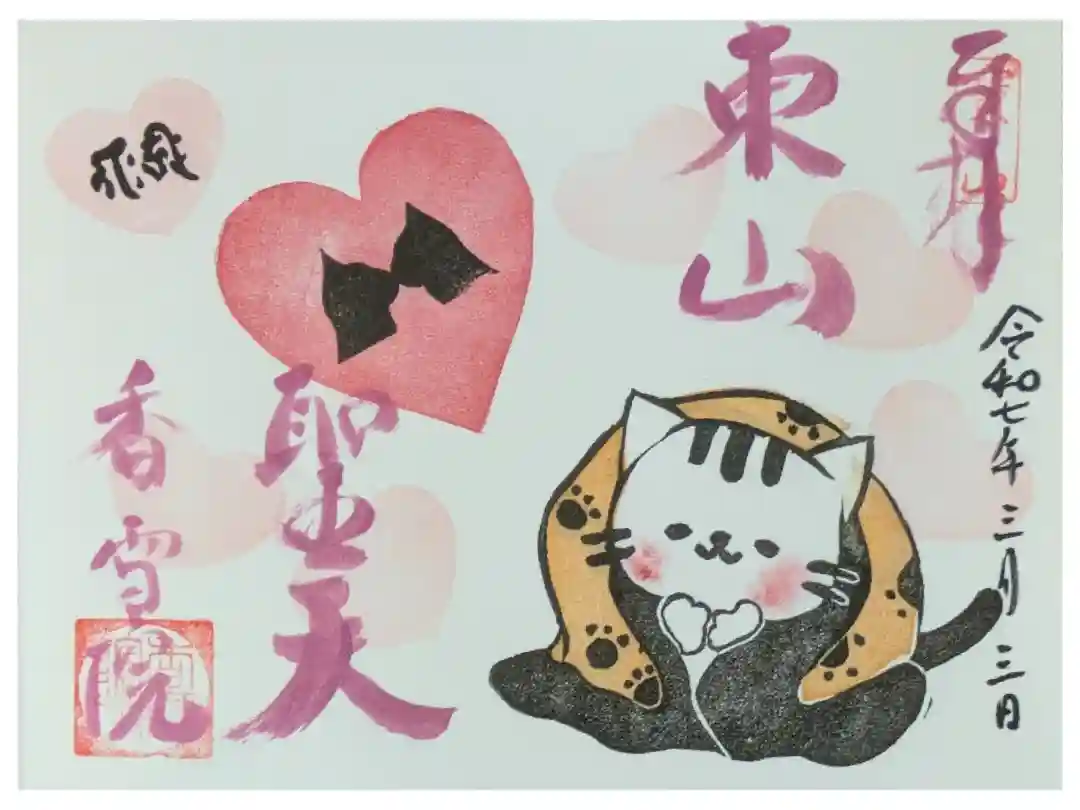 奉拝
令和七年三月三日
東山
聖天
香雪院